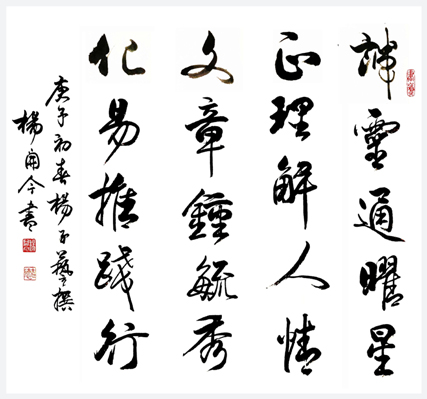 靈通曜星
正理解人情
文章鐘毓秀
化易推踐行
庚子初春楊藝撰
楊今書